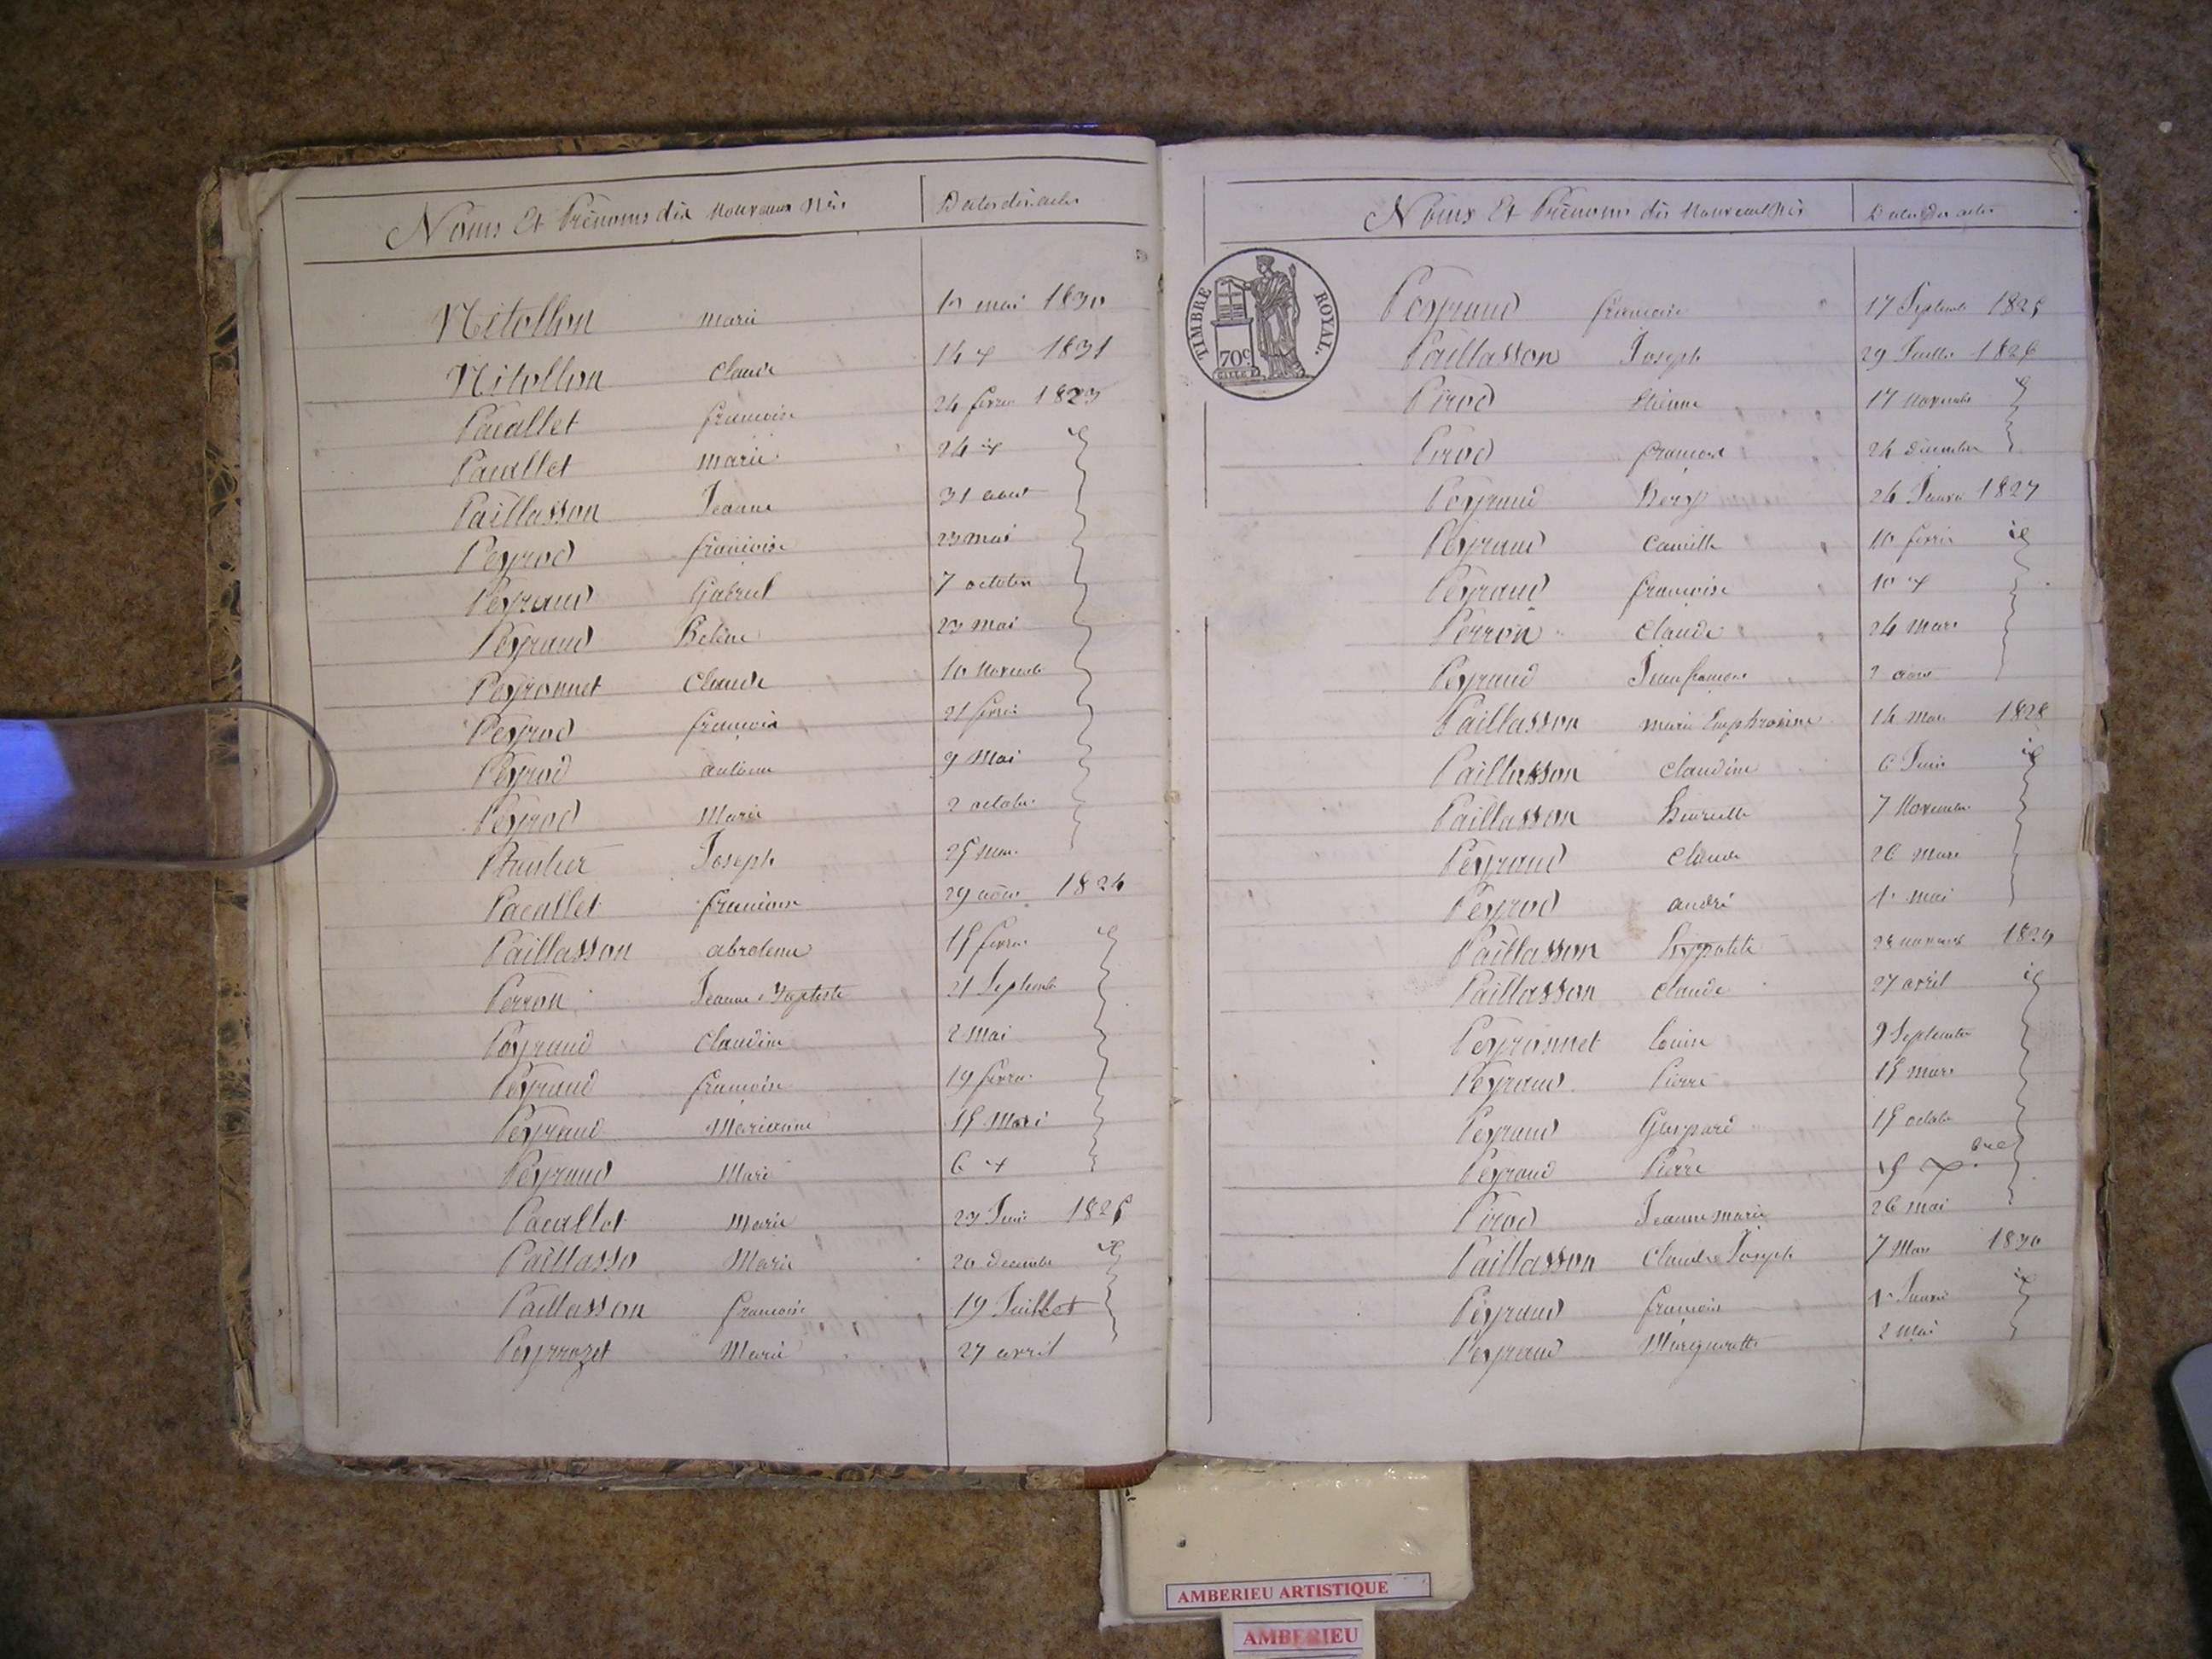 Noms Et Prénoms des Nouveaux Nés Dates des actes
Nitollon marie 10 mai 1830
Nitollon Claude 14 1831
Pacallet francoise 24 fevrier 1823
Pacallet marie 24
Paillasson Jeanne 31 aout
Peyrod francoise 23 mai
Peyraud Gabriel 7 octobre
Peyraud 23 mai
Peyronnet Claude 10 Novembre
Peyrod francois 21 fevrier
Peyrod antoine 9 Mai
Peyrod Marie 2 octobre
Joseph 25
Pacallet francoise 29 août 1824
Paillasson 15 fevrier
Perron Jeanne Baptiste 21 Septembre
Peyraud Claudine 2 Mai
Peyraud francoise 19 fevrier
Peyraud Marianne 15
Peyraud Marie 6
Pacallet Marie 23 Juin 1825
Paillasso Marie 20 decembre
Paillasson francoise 19 Juillet
Peyrrozet Marie 27 avril
Noms Et Prénoms des Nouveaux Nés Dates des actes
TIMBRE ROYAL.
70c
Peyraud francoise 17 Septembre 1825
Paillasson Joseph 29 Juillet 1826
Pirod Etienne 17 Novembre
Pirod francois 24 decembre
Peyraud 24 Janvier 1827
Peyraud Camille 10 fevrier
Peyraud francoise 10
Perron Claude 24 Mars
Peyraud Jean francois 2 aout
Paillasson marie Euphrosine 14 1828
Paillasson Claudine 6 Juin
Paillasson henriette 7 Novembre
Peyraud Claude 26 Mars
Peyrod andré 1er mai
Paillasson hyppolite 1829
Paillasson Claude 27 avril
Peyronnet Louise 9 Septembre
Peyraud Pierre 15 mars
Peyraud Gaspard 15 octobre
Peyraud Pierre
Pirod Jeanne marie 26 mai
Paillasson Claude Joseph 7 Mars 1830
Peyraud francois 1er Janvier
Peyraud Marguerite 2 Mai
AMBERIEU ARTISTIQUE
AMBERIEU